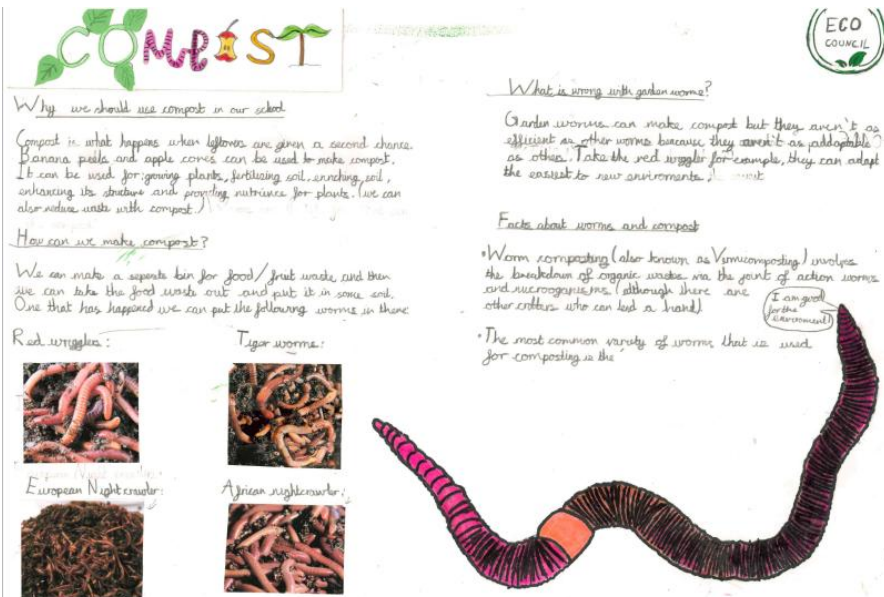 COMPOST
ECO
COUNCIL
Why we should use compost in our school
Compost is what happens when leftovers are given a second chance.
Banana peels and apple cores can be used to make compost.
It can be used for: growing plants, fertilising soil, enriching soil,
enhancing its structure and providing nutrience for plants. (we can
also reduce waste with compost.)
How can we make compost?
We can make a seperate bin for food/fruit waste and then
we can take the food waste out and put it in some soil.
One that has happened we can put the following worms in there:
Red wrigglers:
Tiger worms:
European Nightcrawler:
African nightcrawler:
What is wrong with garden worms?
Garden worms can make compost but they aren't as
efficient as other worms because they aren't as addaptable
as others. Take the red wiggler for example, they can adapt
the easiest to new enviroments.
Facts about worms and compost
•Worm composting (also known as Vermicomposting) involves
the breakdown of organic wastes via the joint of action worms
and microoganisms. (although there are
other critters who can lend a hand)
I am good
for the
enviroment!
•The most common variety of worms that is used
for composting is the